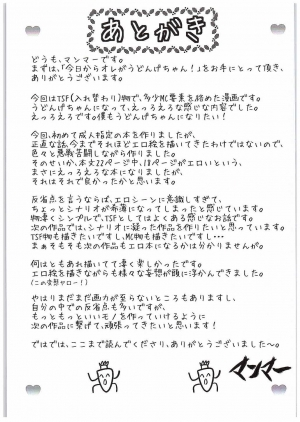 あとがき
どうも、マンマーです。
まずは、「今日からオレがうどんげちゃん！」をお手にとって頂き、
ありがとうございます。
今回はTSF(入れ替わり)物で、多少MC要素を絡めた漫画です。
うどんげちゃんになって、えっろえろな感じな内容でした。
えっろえろです。僕もうどんげちゃんになりたい！
今回、初めて成人指定の本を作りましたが、
正直な話、今までそれほどエロ絵を描いてきたわけではないので、
色々と悪戦苦闘しながら描いてました。
そのせいか、本文22ページ中、18ページがエロいという、
まさにえっろえろな本になりましたが、
それはそれで良かったかと思います。
反省点を言うならば、エロシーンに意識しすぎて、
ちょっとシナリオが希薄になってしまったと感じています。
物凄くシンプルで、TSFとしてはよくある感じなお話です。
次の作品では、シナリオに凝った作品を作りたいと思っています。
TSF物も描きたいですし、MC物も描きたいですし…
まぁそもそも次の作品もエロ本になるかは分かりませんが。
何はともあれ描いてて凄く楽しかったです。
エロ絵を描きながらも様々な妄想が頭に浮かんできました。
(この変態ヤロー！)
やはりまだまだ画力が至らないところもありますし、
自分の中での反省点も多いですが、
もっともっといいモノを作っていけるように
次の作品に繋げて、頑張ってきたいと思います！
ではでは、ここまで読んでくださり、ありがとうございました〜。
マンマー